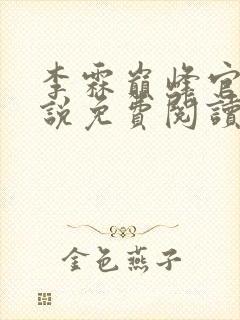 李霖巔峰官
說免費閱讀
金色燕子